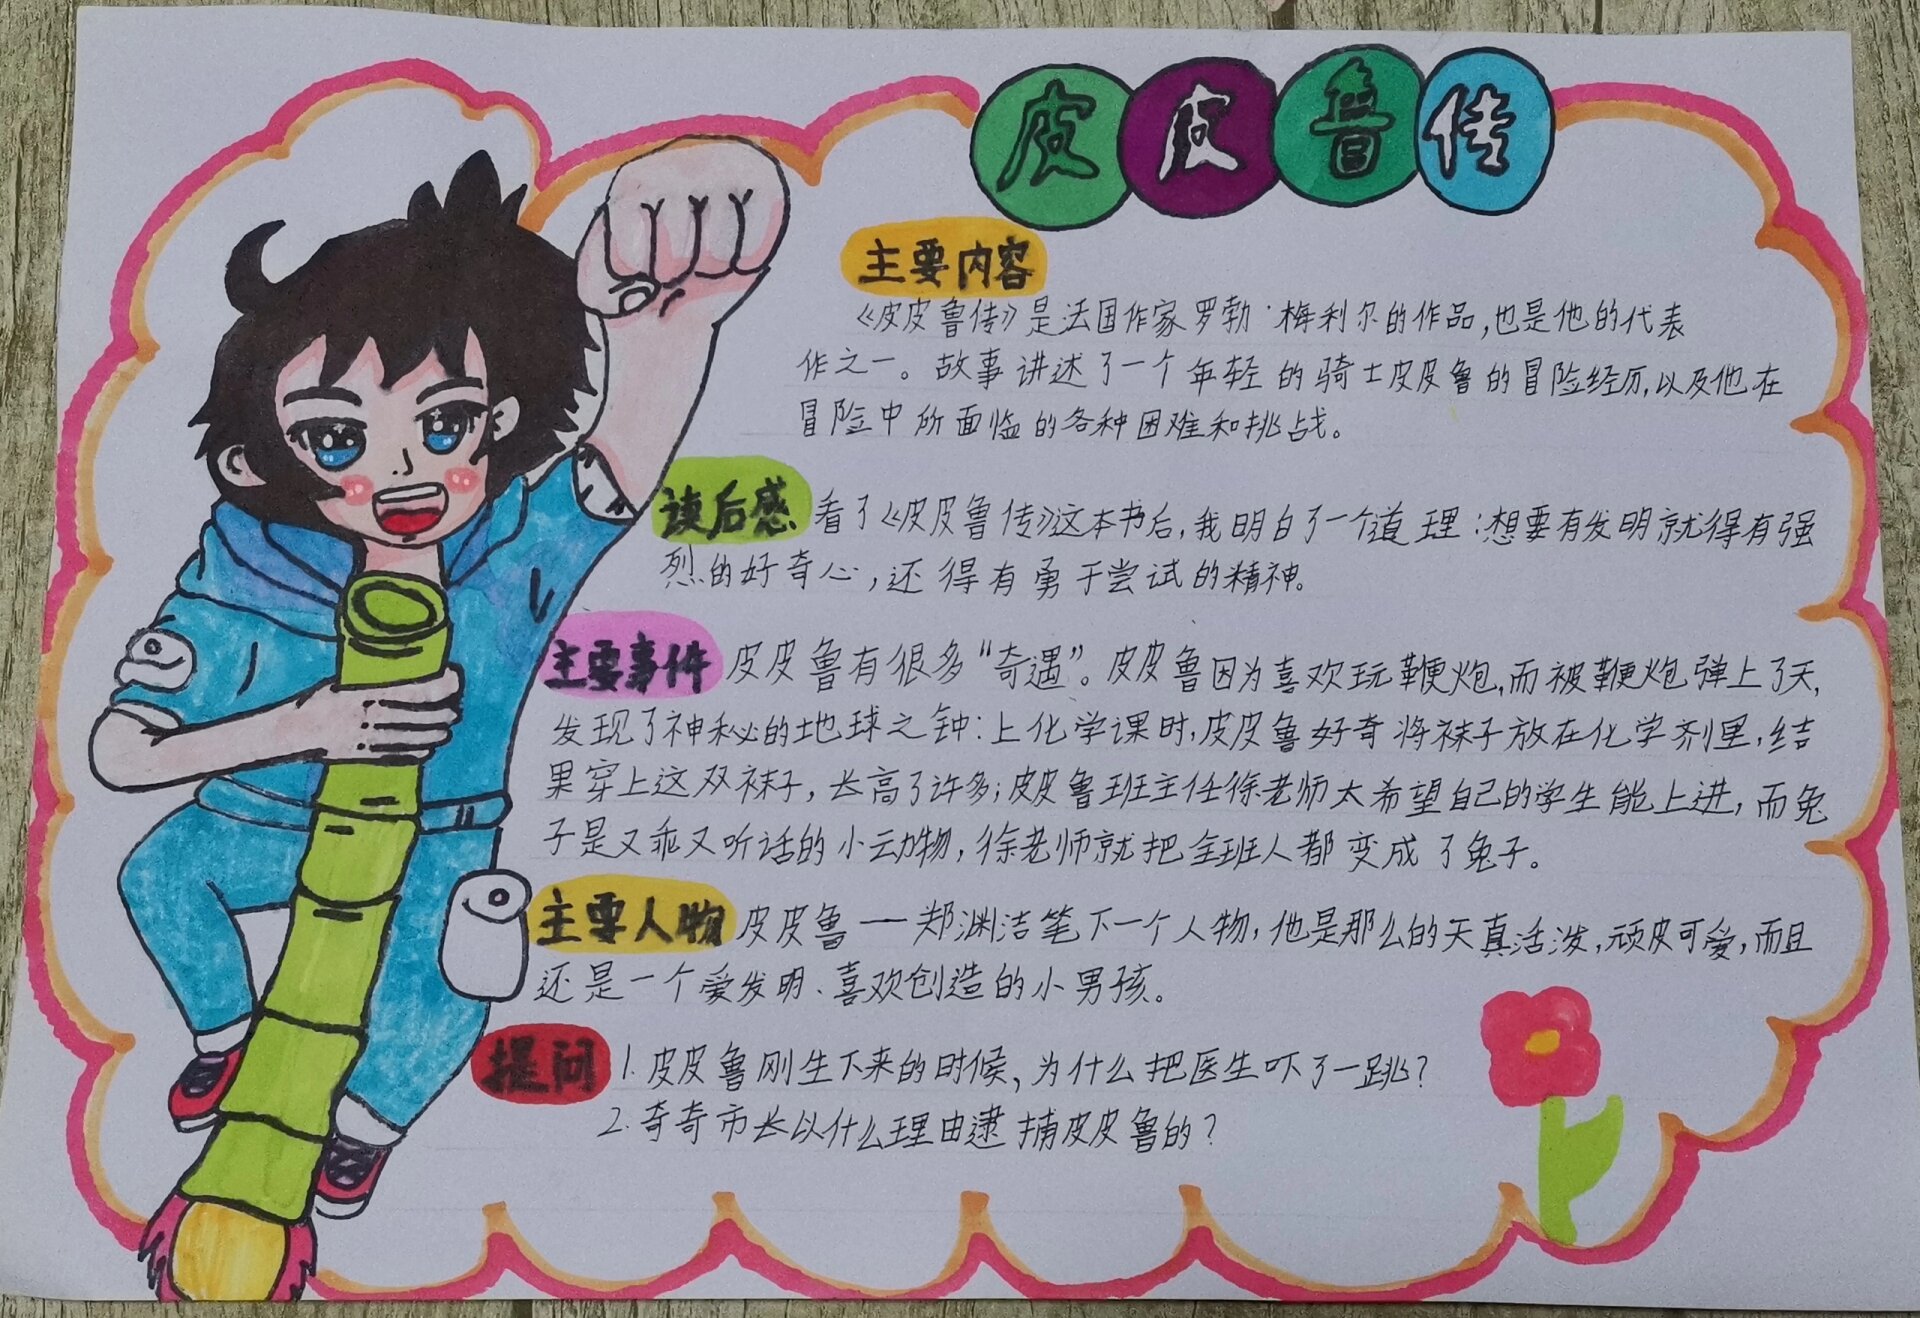 皮皮鲁传
主要内容
《皮皮鲁传》是法国作家罗勃·梅利尔的作品,也是他的代表
作之一。故事讲述了一个年轻的骑士皮皮鲁的冒险经历,以及他在
冒险中所面临的各种困难和挑战。
读后感 看了《皮皮鲁传》这本书后,我明白了一个道理:想要有发明就得有强
烈的好奇心,还得有勇于尝试的精神。
主要事件 皮皮鲁有很多“奇遇”。皮皮鲁因为喜欢玩鞭炮,而被鞭炮弹上了天,
发现了神秘的地球之钟:上化学课时,皮皮鲁好奇将袜子放在化学剂里,结
果穿上这双袜子,长高了许多;皮皮鲁班主任徐老师太希望自己的学生能上进,而兔
子是又乖又听话的小动物,徐老师就把全班人都变成了兔子。
主要人物 皮皮鲁——郑渊洁笔下一个人物,他是那么的天真活泼,顽皮可爱,而且
还是一个爱发明、喜欢创造的小男孩。
提问 1.皮皮鲁刚生下来的时候,为什么把医生吓了一跳?
2.奇奇市长以什么理由逮捕皮皮鲁的?